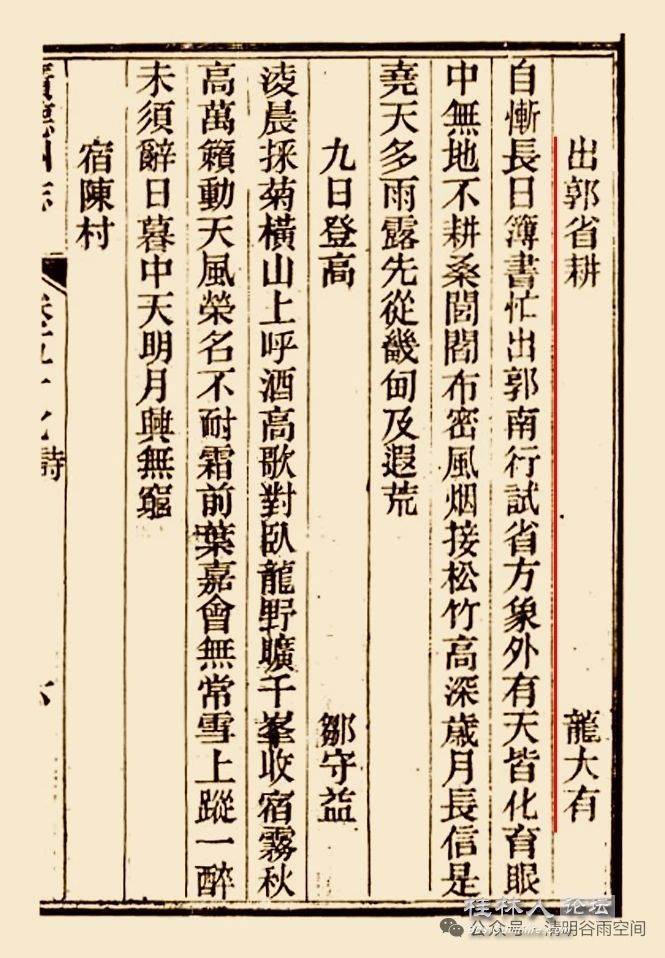 出郭省耕 龍大有
自慚長日簿書忙出郭南行試省方象外有天皆化育眼
中無地不耕桑閭閻布密風烟接松竹高深歲月長信是
堯天多雨露先從畿甸及遐荒
九日登高 鄒守益
淩晨採菊橫山上呼酒高歌對臥龍野曠千峯收宿霧秋
高萬籟動天風榮名不耐霜前葉嘉會無常雪上蹤一醉
未須辭日暮中天明月興無窮
宿陳村
州志
詩
桂林人论坛
公众号 清明谷雨空间